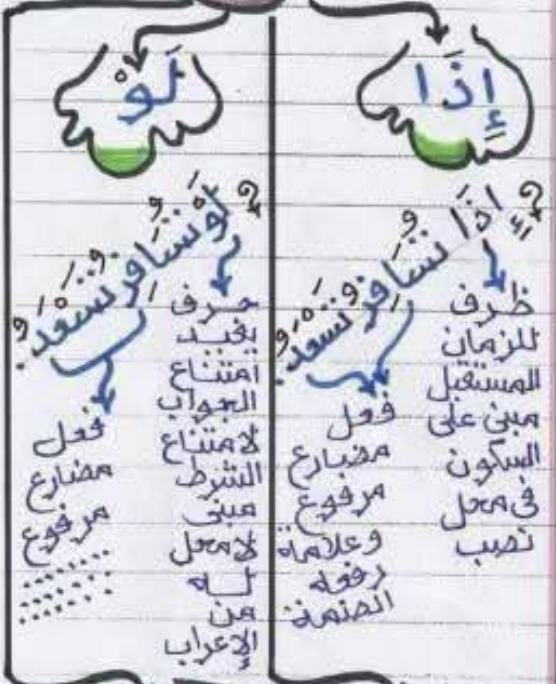 إِذَا
إِذَا نُسَافِرُ نَسْعَدُ.
ظرف
للزمان
المستقبل
مبنى على
السكون
فى محل
نصب
فعل
مضارع
مرفوع
وعلامة
رفعه
الضمة
لَوْ
لَوْ نُسَافِرُ نَسْعَدُ.
حرف
يفيد
امتناع
الجواب
لامتناع
الشرط
مبنى
لامحل
له
من
الإعراب
فعل
مضارع
مرفوع